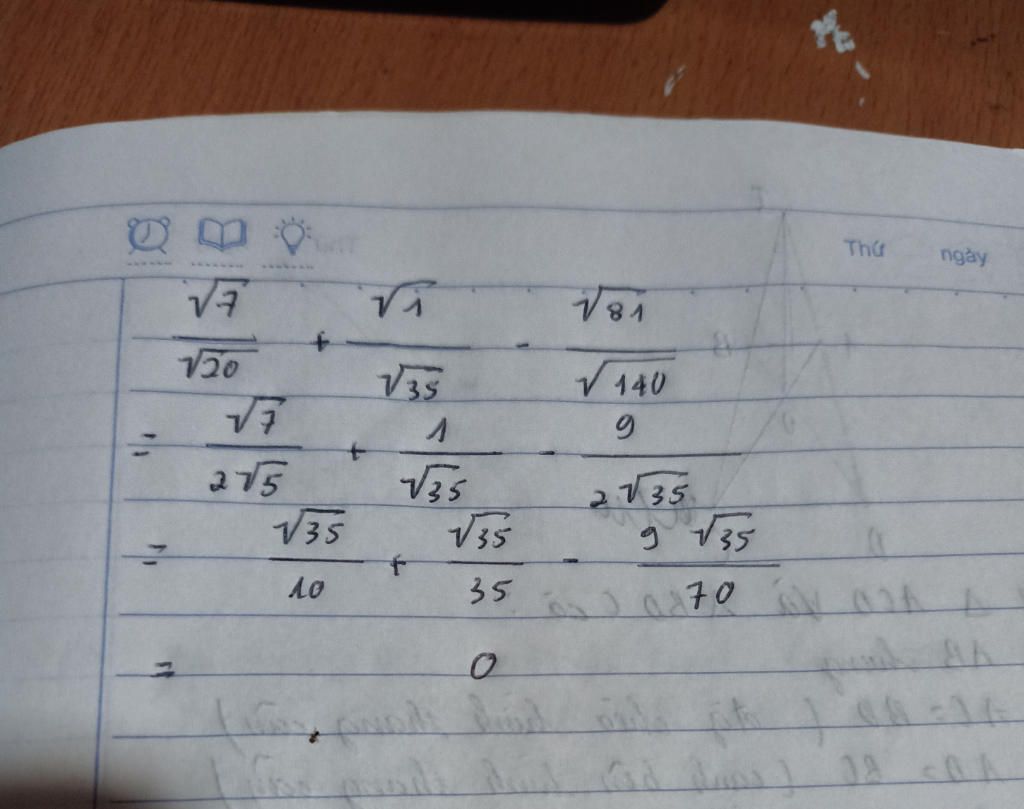 Thứ ngày
√7/√20 + √1/√35 - √81/√140
= √7/2√5 + 1/√35 - 9/2√35
= √35/10 + √35/35 - 9√35/70
= 0